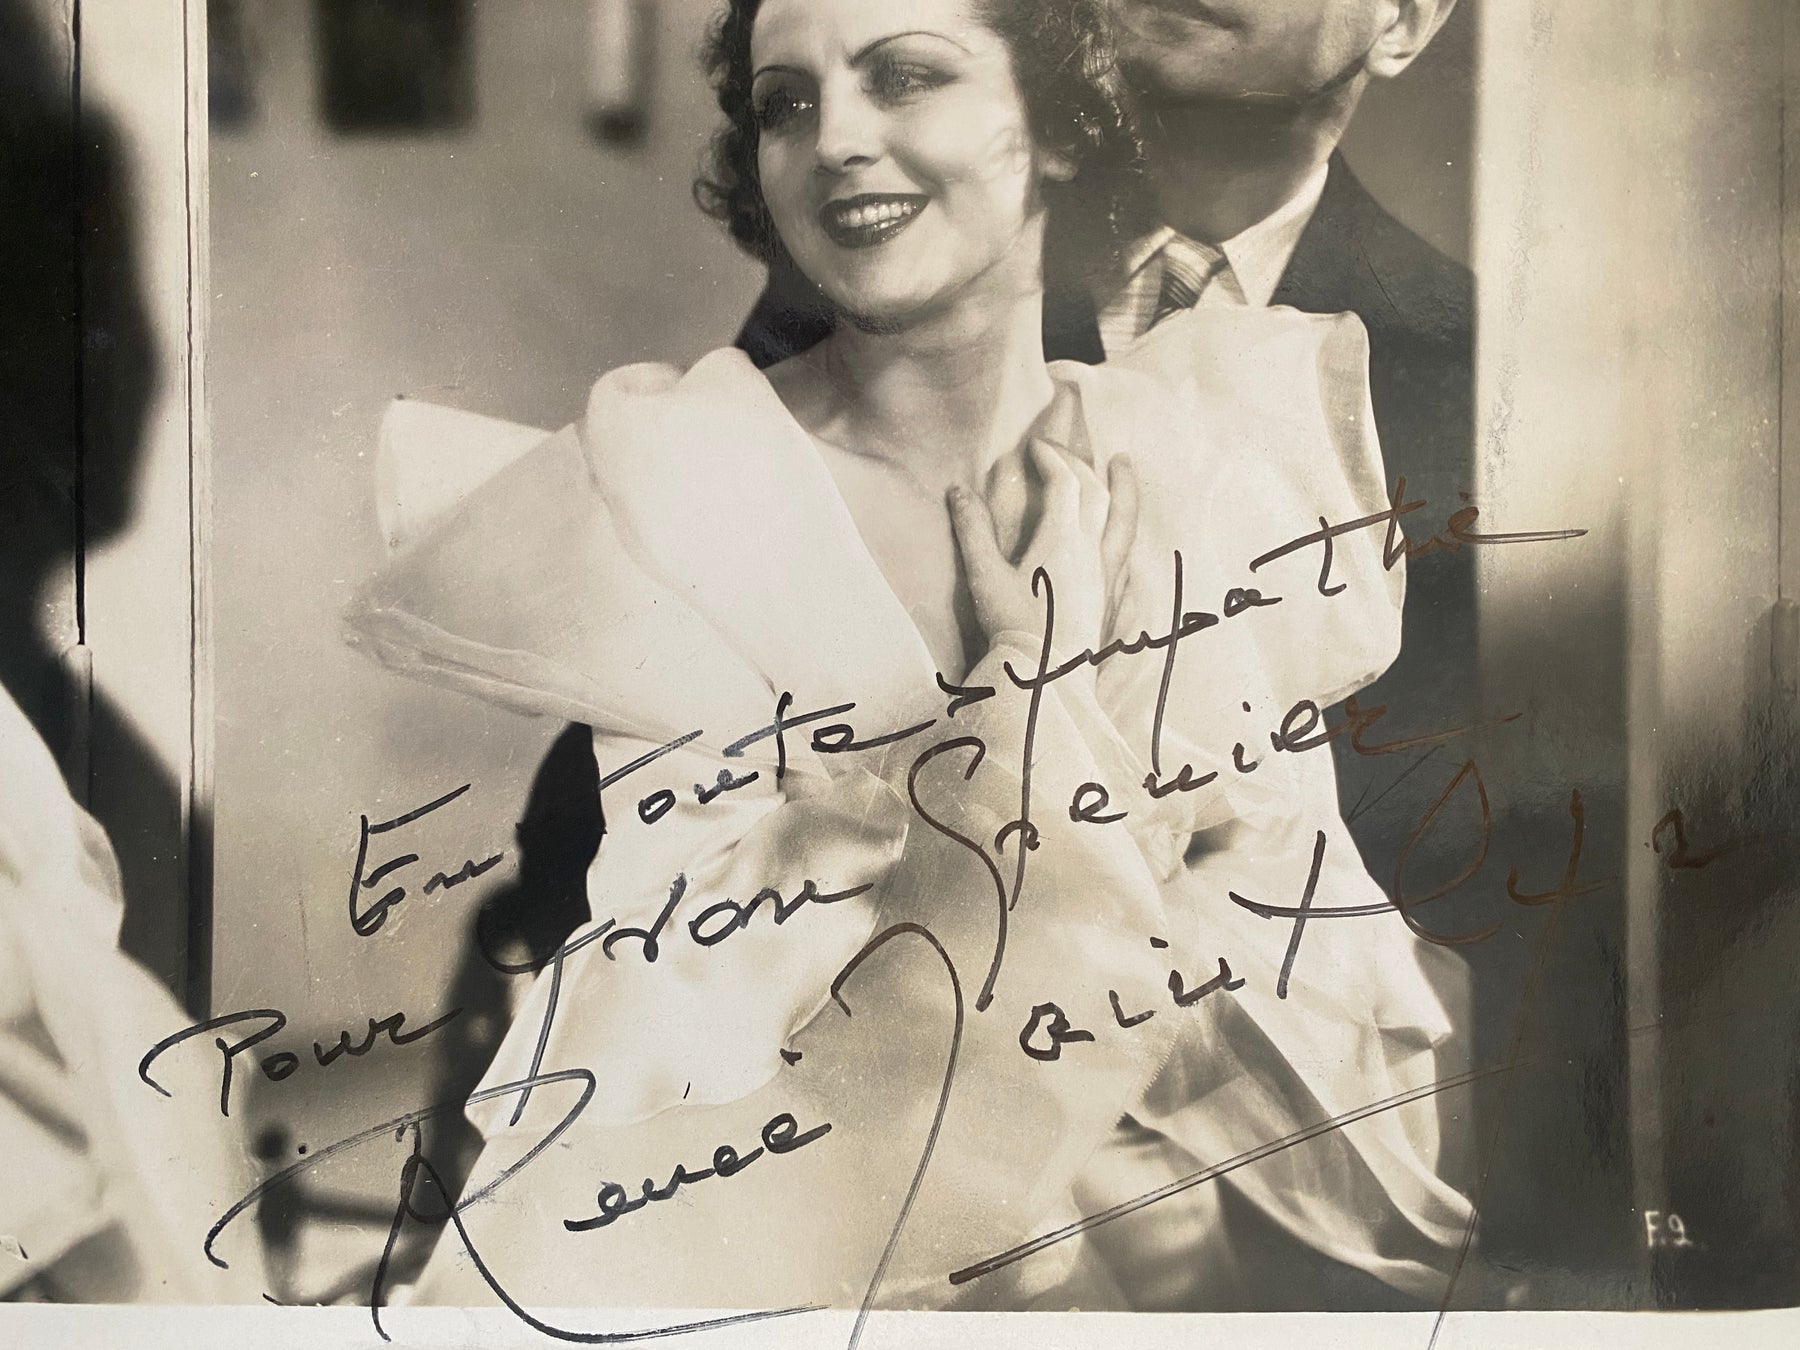 En toute sympathie
Pour Yvon Spenier
Renée Saint Cyr
F.9